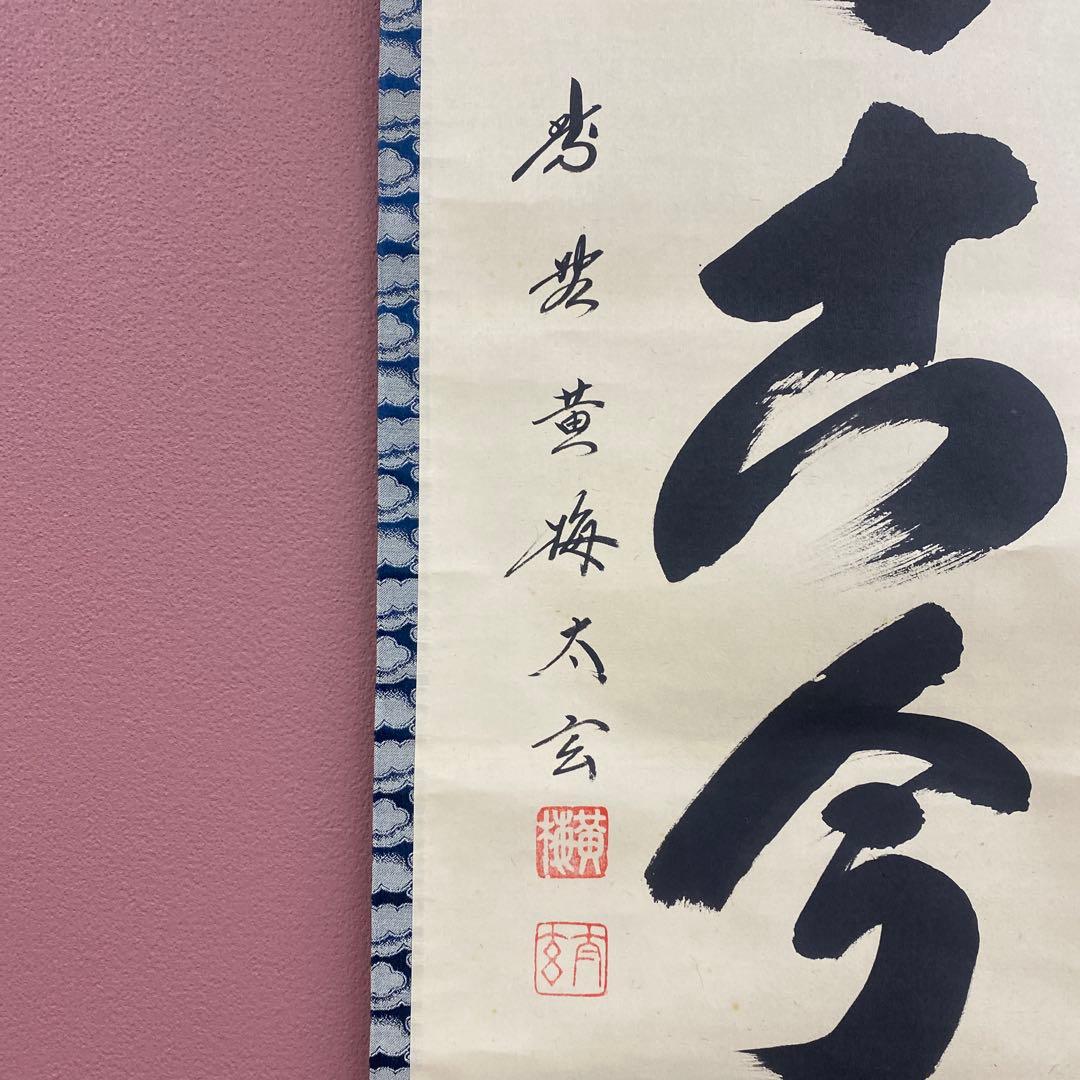 古今
黄梅太玄
黄梅
太玄